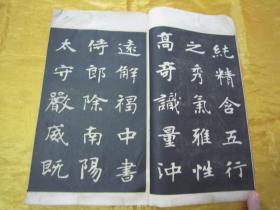 純精含五行
之秀氣雅性
高奇識量沖
遠解褐中書
侍郎除南陽
太守嚴威既